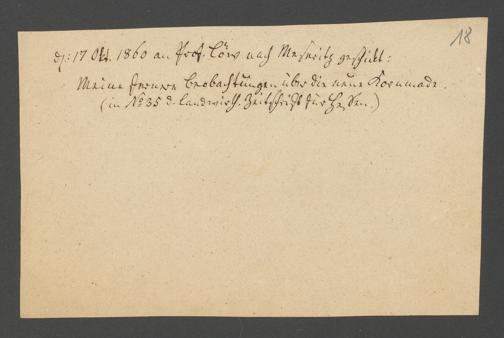 18
d: 17 Okt. 1860 an Prof. Löw nach Meseritz geschickt:
Meine ferneren Beobachtungen über die neue Kornmade.
(in No 35 d. landwirth. Zeitschrift für Hessen.)